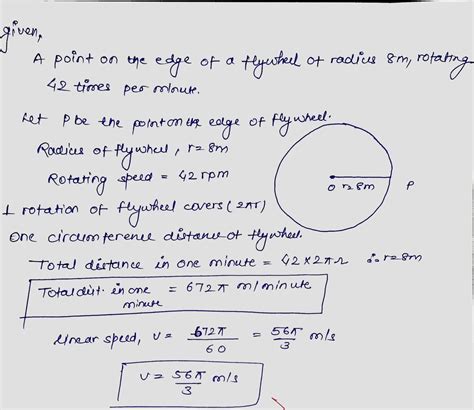 given,
A point on the edge of a flywheel of radius 8m, rotating
42 times per minute.
Let P be the point on the edge of flywheel.
Radius of flywheel, r = 8m
Rotating speed = 42 rpm
O r=8m P
1 rotation of flywheel covers (2πr)
One circumference distance of flywheel.
Total distance in one minute = 42 × 2πr ∴ r = 8m
Total dist. in one minute = 672π m/minute
Linear speed, v = 672π/60 = 56π/3 m/s
v = 56π/3 m/s